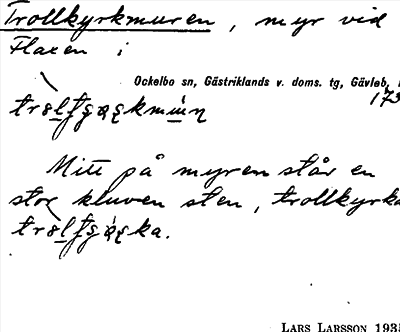 Trollkyrkmuren, myr vid
Flaxen i
Ockelbo sn, Gästriklands v. doms. tg, Gävleb.
173
Mitt på myren står en
stor kluven sten, trollkyrka
LARS LARSSON 193